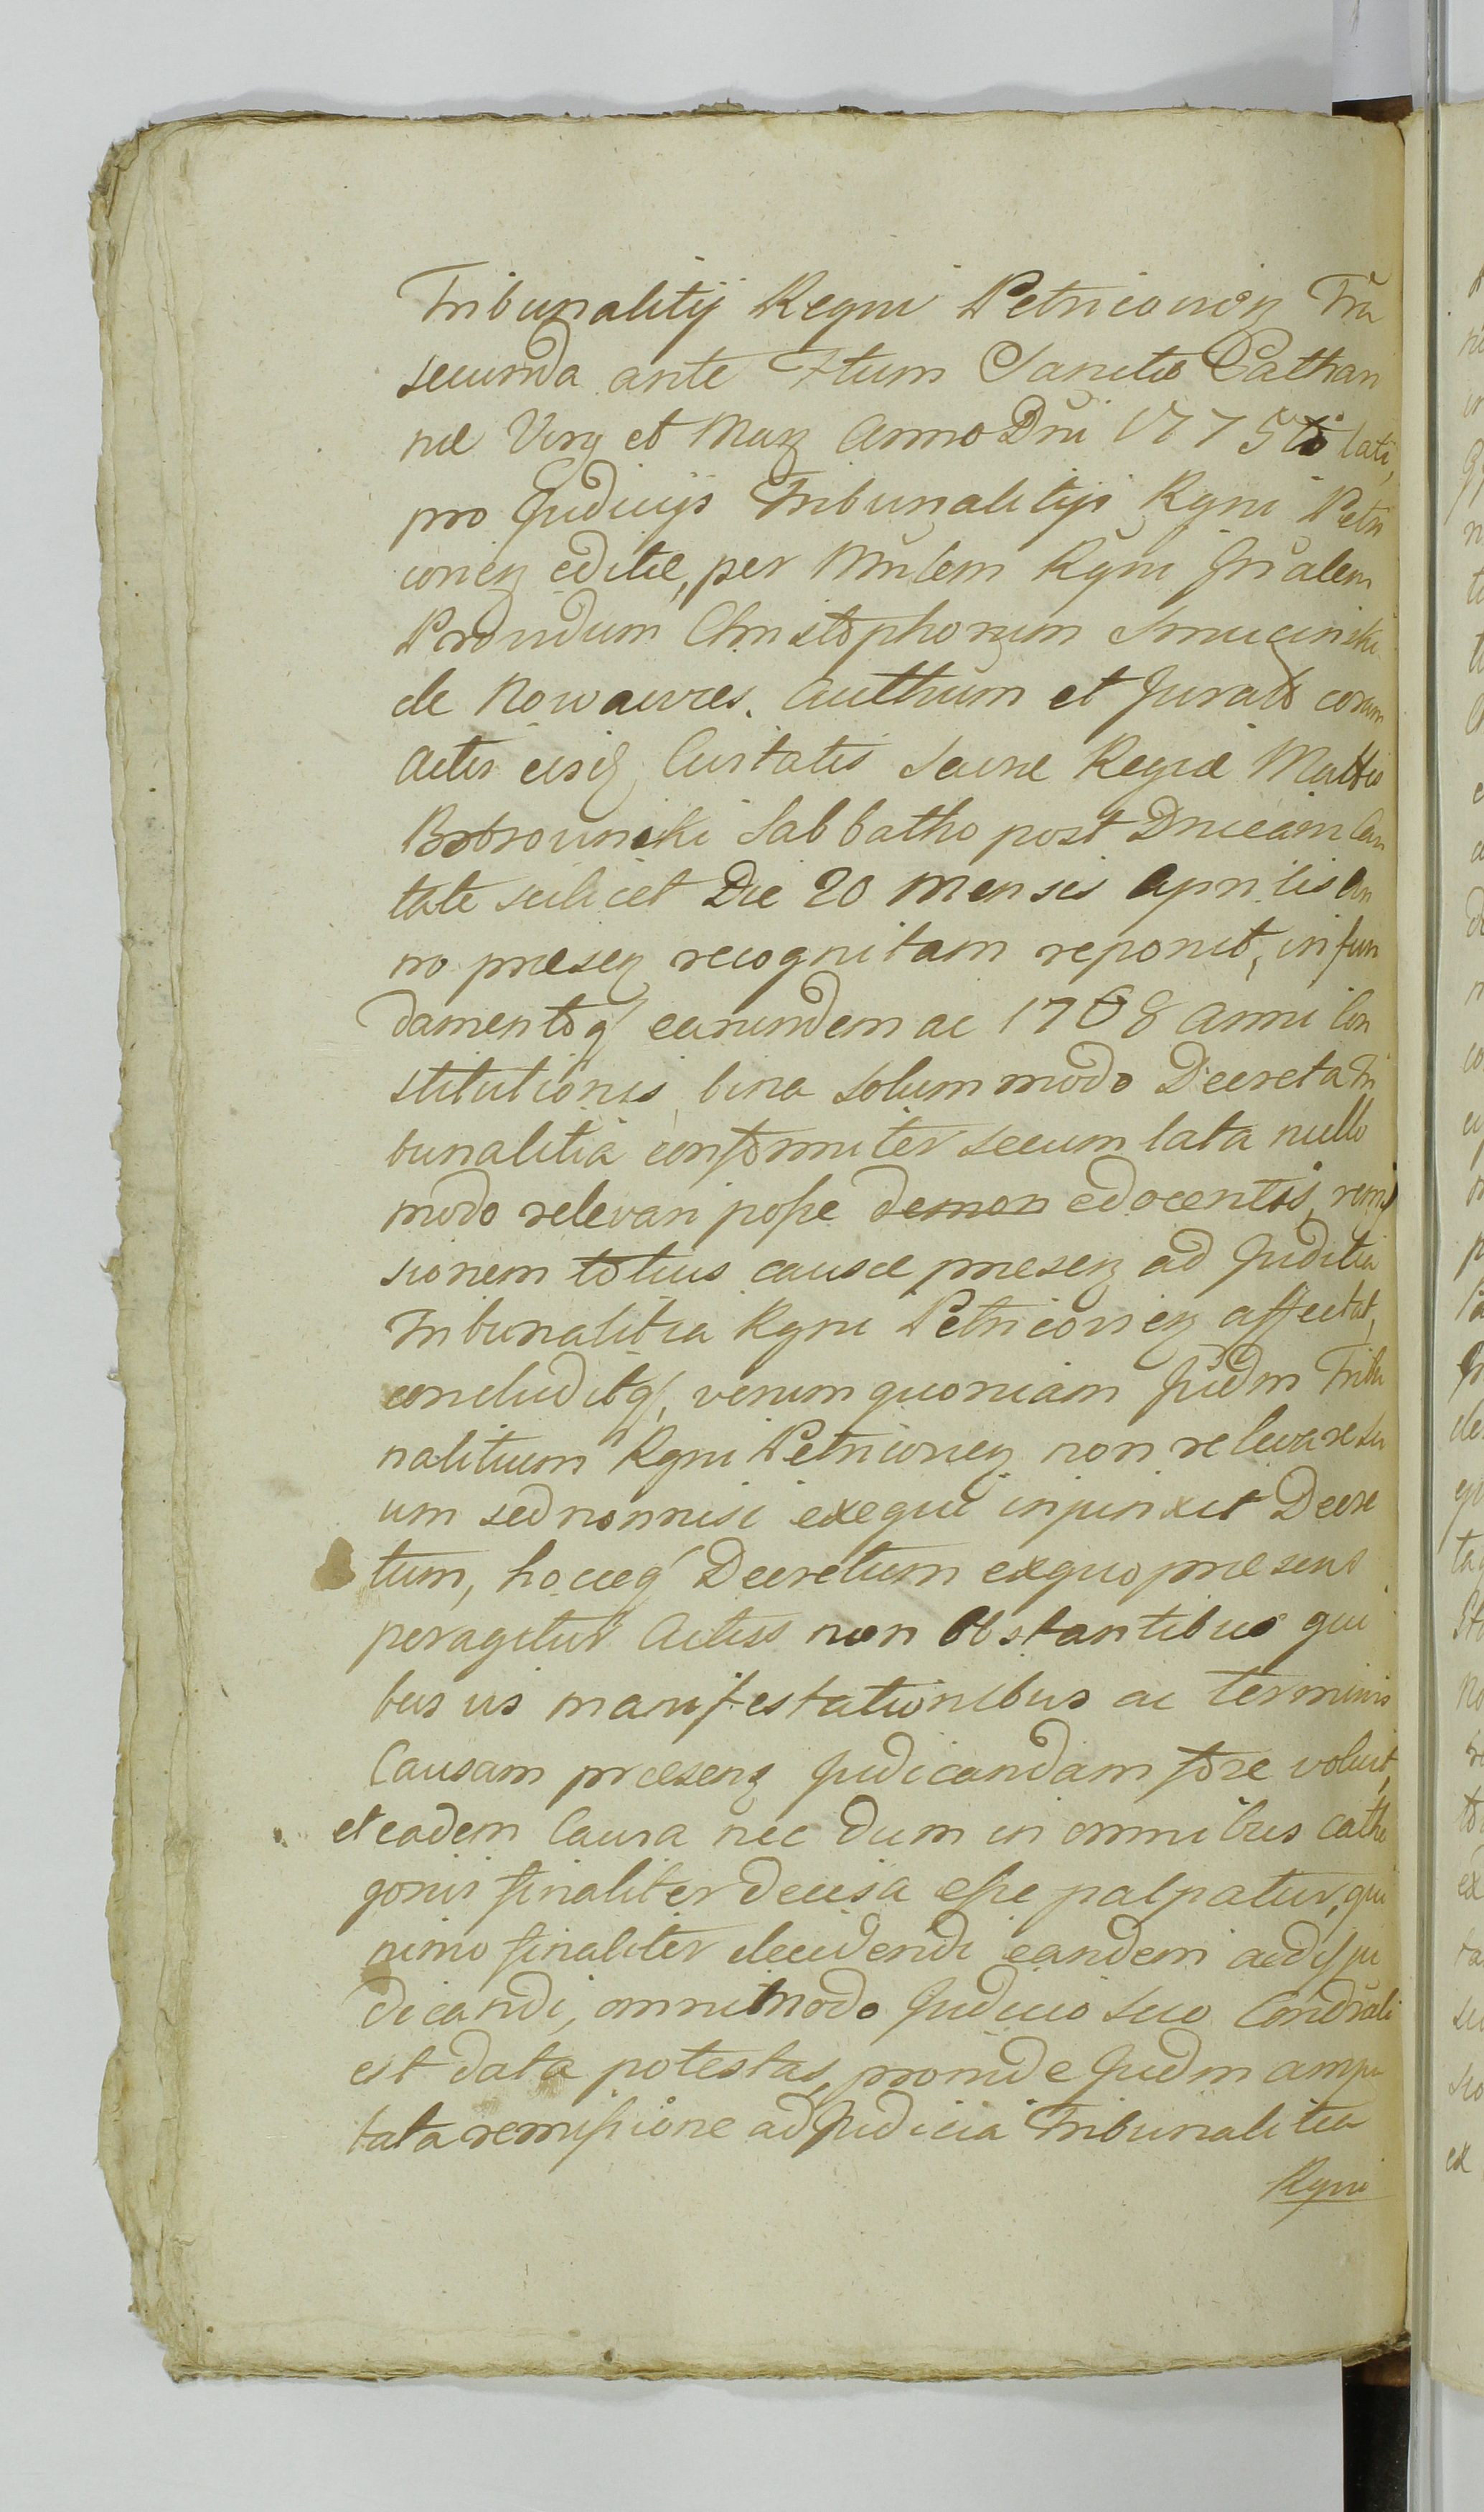 Tribunalitij Regni Petricovien Fria
secunda ante Ftum Sanctæ Cathari
næ Virg et Marg Anno Dni 1775to lati,
pro Judicijs Tribunalitijs Rgni Petri
covien editæ, per Mnlem Rgni Gnalem
Providum Christophorum
de Nowawies. Authum et Juratt coram
Actis eisq Civitatis Sacræ Regiæ Mattis
Bobrowniki Sabbatho post Dnicam Can
tate scilicet Die 20 Mensis Aprilis An
no præsen recognitam reponit, in fun
damentoq earundem ac 1768 Anni Con
stitutionis bina solummodo Decreta Tri
bunalitia conformiter secum lata nullo
modo relevari posse edocentis, remis
sionem totius causæ præsen ad Juditia
Tribunalitia Rgni Petricovien affectat,
concluditq, verum quoniam Judm Tribu
nalitium Rgni Petricovien non relevare su
um sed nonnisi exequi injunxit Decre
tum, hocceq Decretum ex quo præsens
peragitur Actiss non Obstantibus qui
bus vis manifestationibus ac terminis
Causam præsen Judicandam fore voluit,
et eadem Causa nec dum in omnibus cathe
goriis finaliter decisa esse palpatur, qui
nimo finaliter decidendi eandem acdiju
dicandi, omnimodo Judicio suo Condrali
est data potestas, proinde Judm ampu
tata remissione ad Judicia Tribunalitia
Rgni